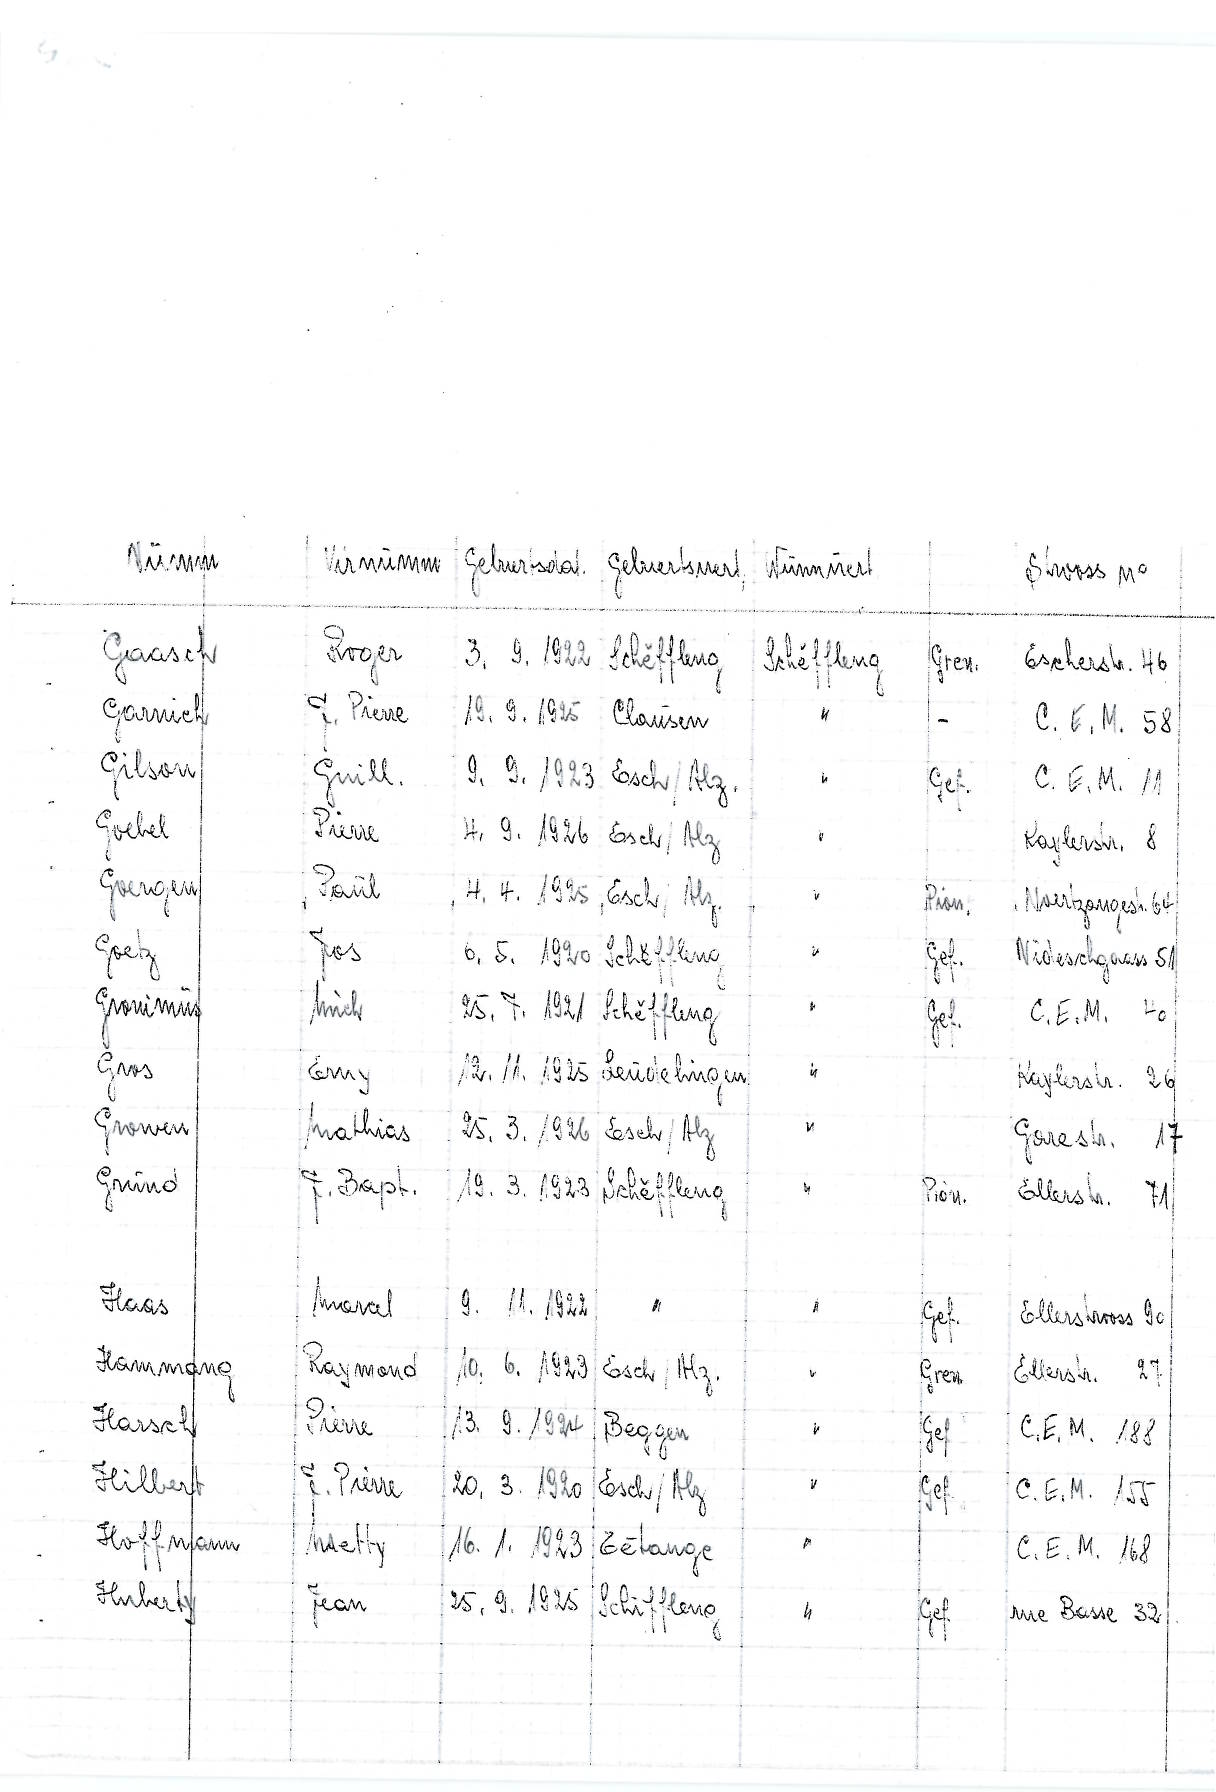 Nümm Virnümm Geburtsdat. Gebuertsuert, Wunnuert Strooss No
Gaasch Roger 3. 9. 1922 Schëffleng Schëffleng Gren. Escherstr. 46
Garnich J. Pierre 19. 9. 1925 Clausen " - C. E. M. 58
Gilson Guill. 9. 9. 1923 Esch/Alz. " Gef. C. E. M. 11
Goebel Pierre 4. 9. 1926 Esch/Alz " Kaylerstr. 8
Goergen Paul 4. 4. 1925 Esch/Alz. " Pion. Noertzangestr. 64
Goetz Jos 6. 5. 1920 Schëffleng " Gef. Nideschgaass 51
Gronimus Mich 25. 7. 1921 Schëffleng " Gef. C. E. M. 40
Gros Erny 12. 11. 1925 Leudelingen " Kaylerstr. 26
Growen Mathias 25. 3. 1926 Esch/Alz " Garestr. 17
Grund J. Bapt. 19. 3. 1923 Schëffleng " Pion. Ellerstr. 71
Haas Marcel 9. 11. 1922 " " Gef. Ellerstrooss 90
Hammang Raymond 10. 6. 1923 Esch/Alz. " Gren Ellerstr. 27
Harsch Pierre 13. 9. 1924 Beggen " Gef C. E. M. 188
Hilbert J. Pierre 20. 3. 1920 Esch/Alz " Gef C. E. M. 155
Hoffmann Metty 16. 1. 1923 Tétange " C. E. M. 168
Huberty Jean 25. 9. 1925 Schiffleng " Gef rue Basse 32